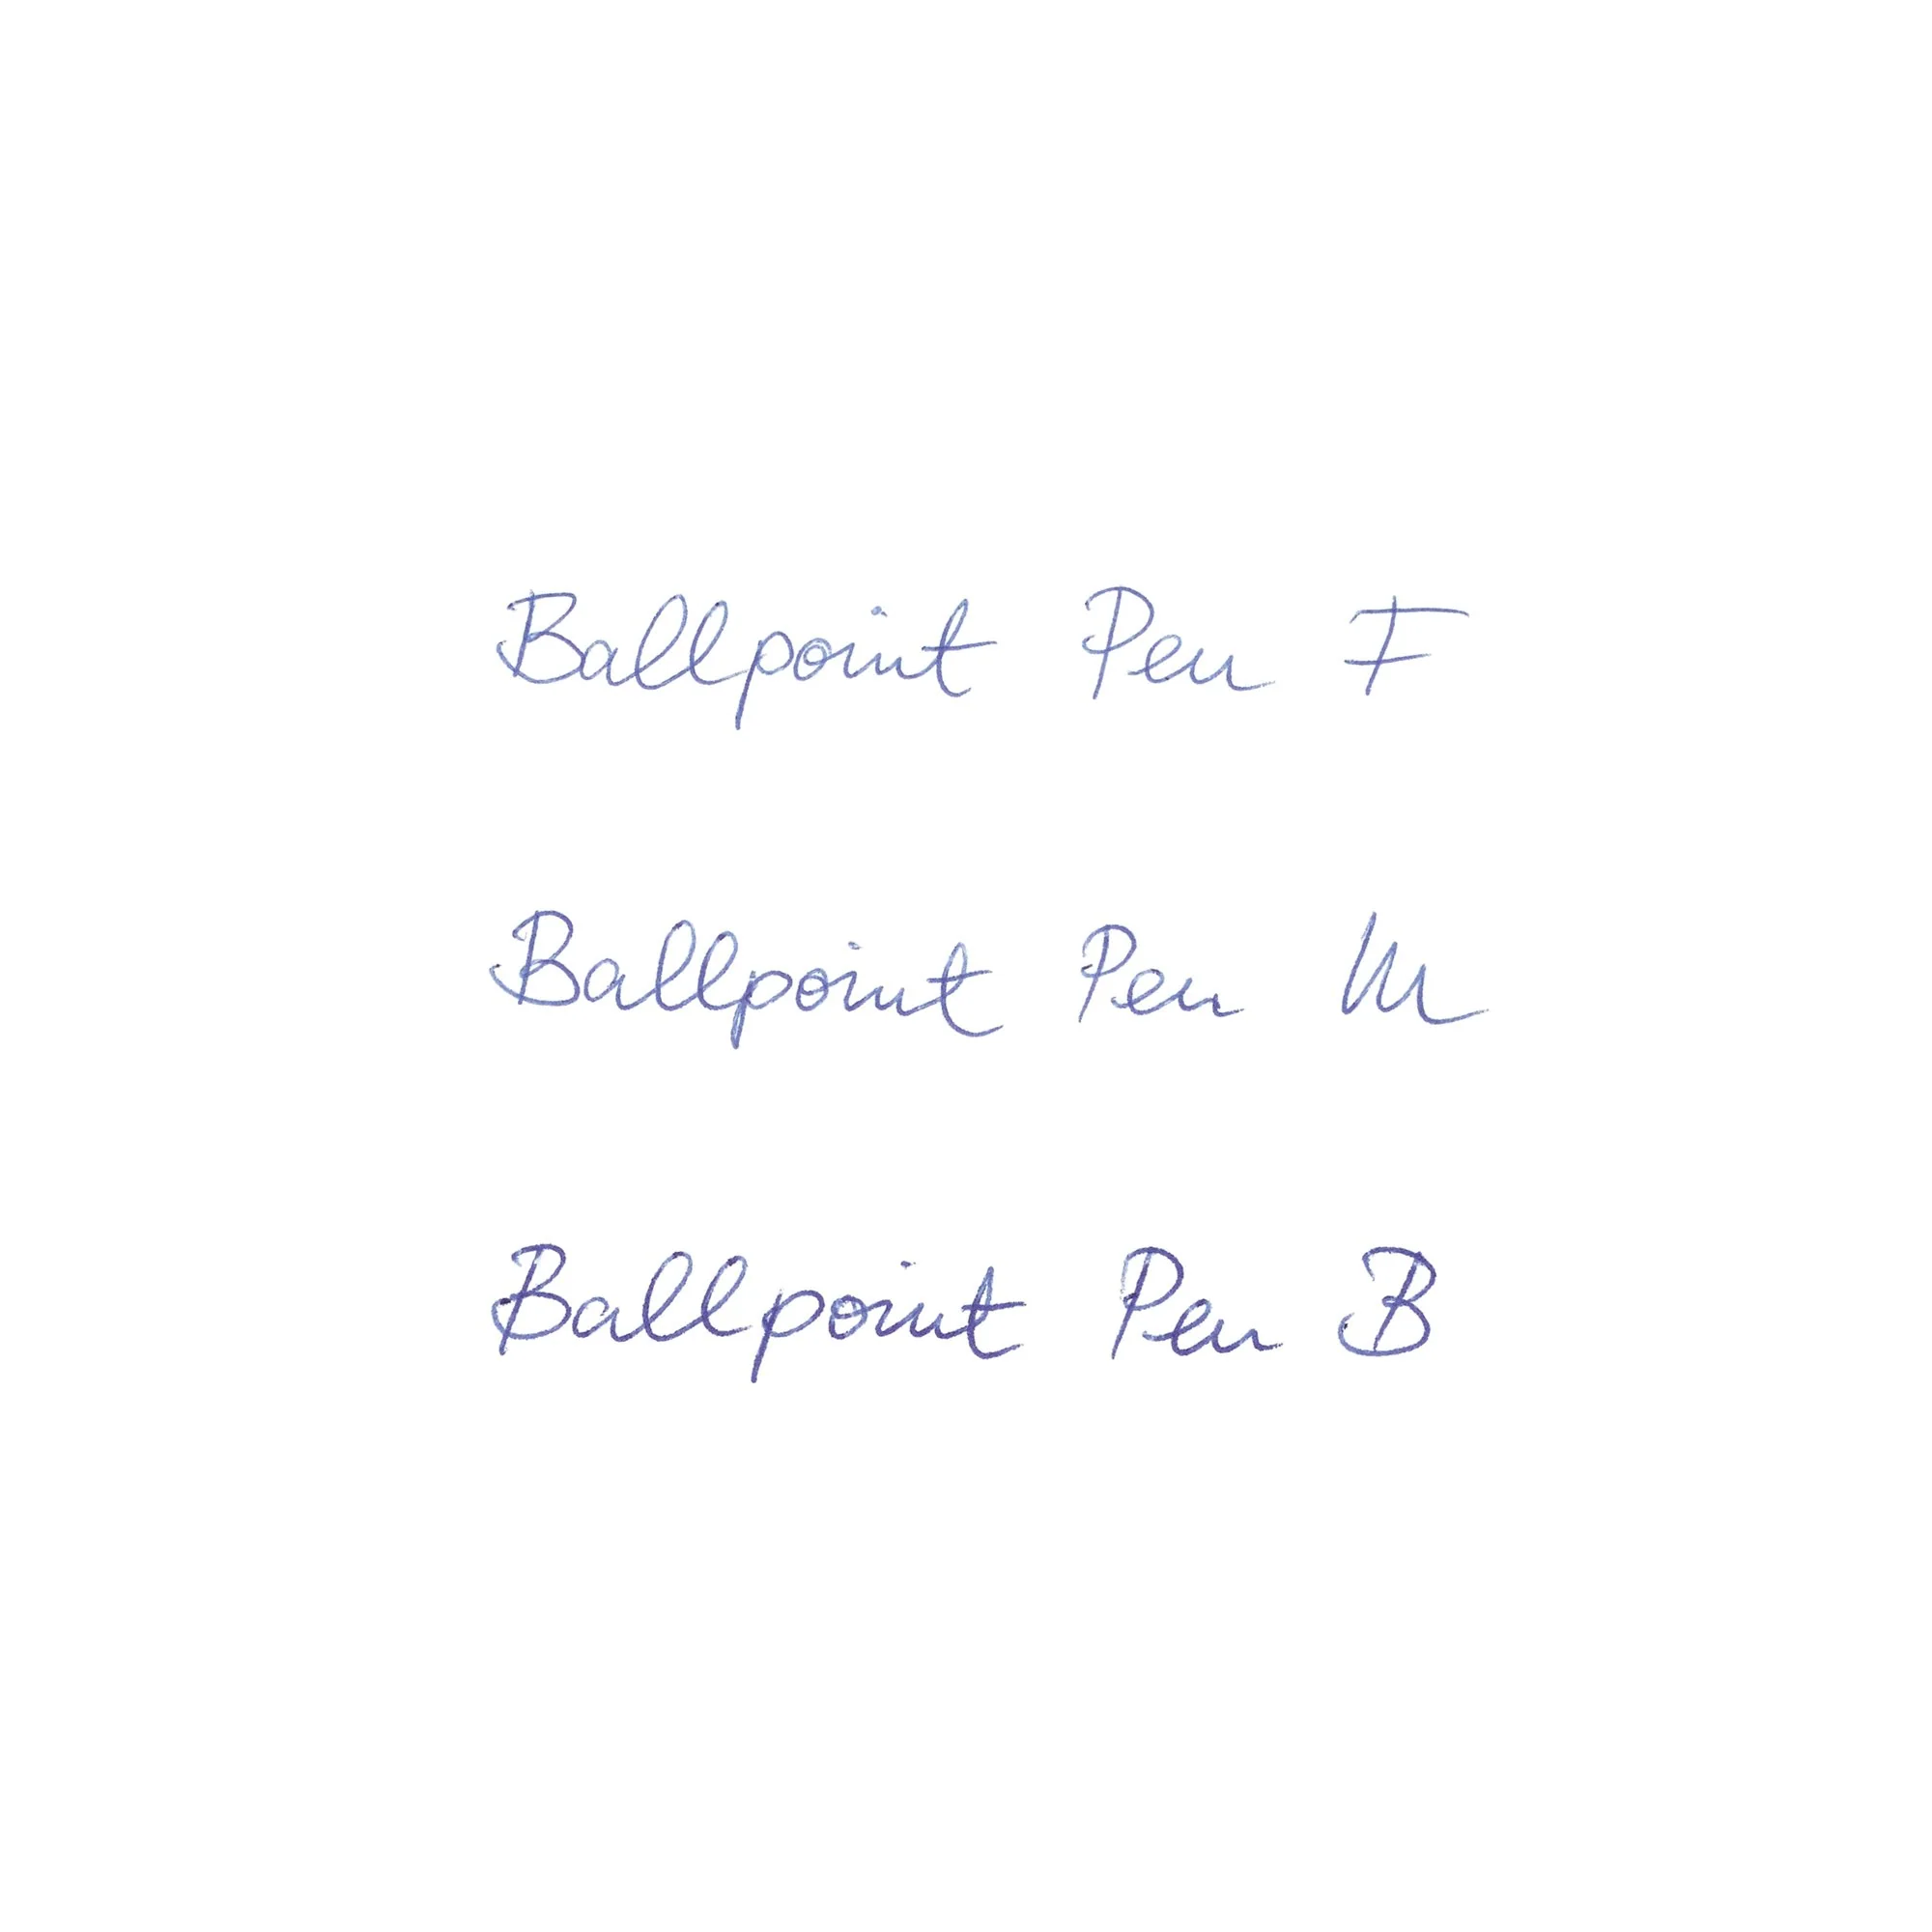 Ballpoint Pen F
Ballpoint Pen M
Ballpoint Pen B